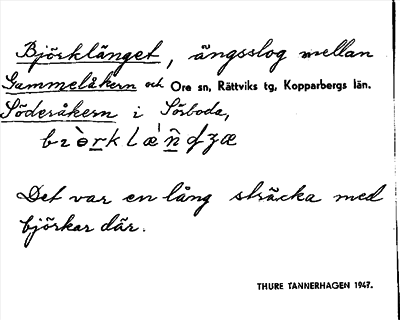 Björklänget, ängsslog mellan
Gammelåkern och Ore sn, Rättviks tg, Kopparbergs län.
Söderåkern i Sörboda,
Det var en lång sträcka med
björkar där.
THURE TANNERHAGEN 1947.